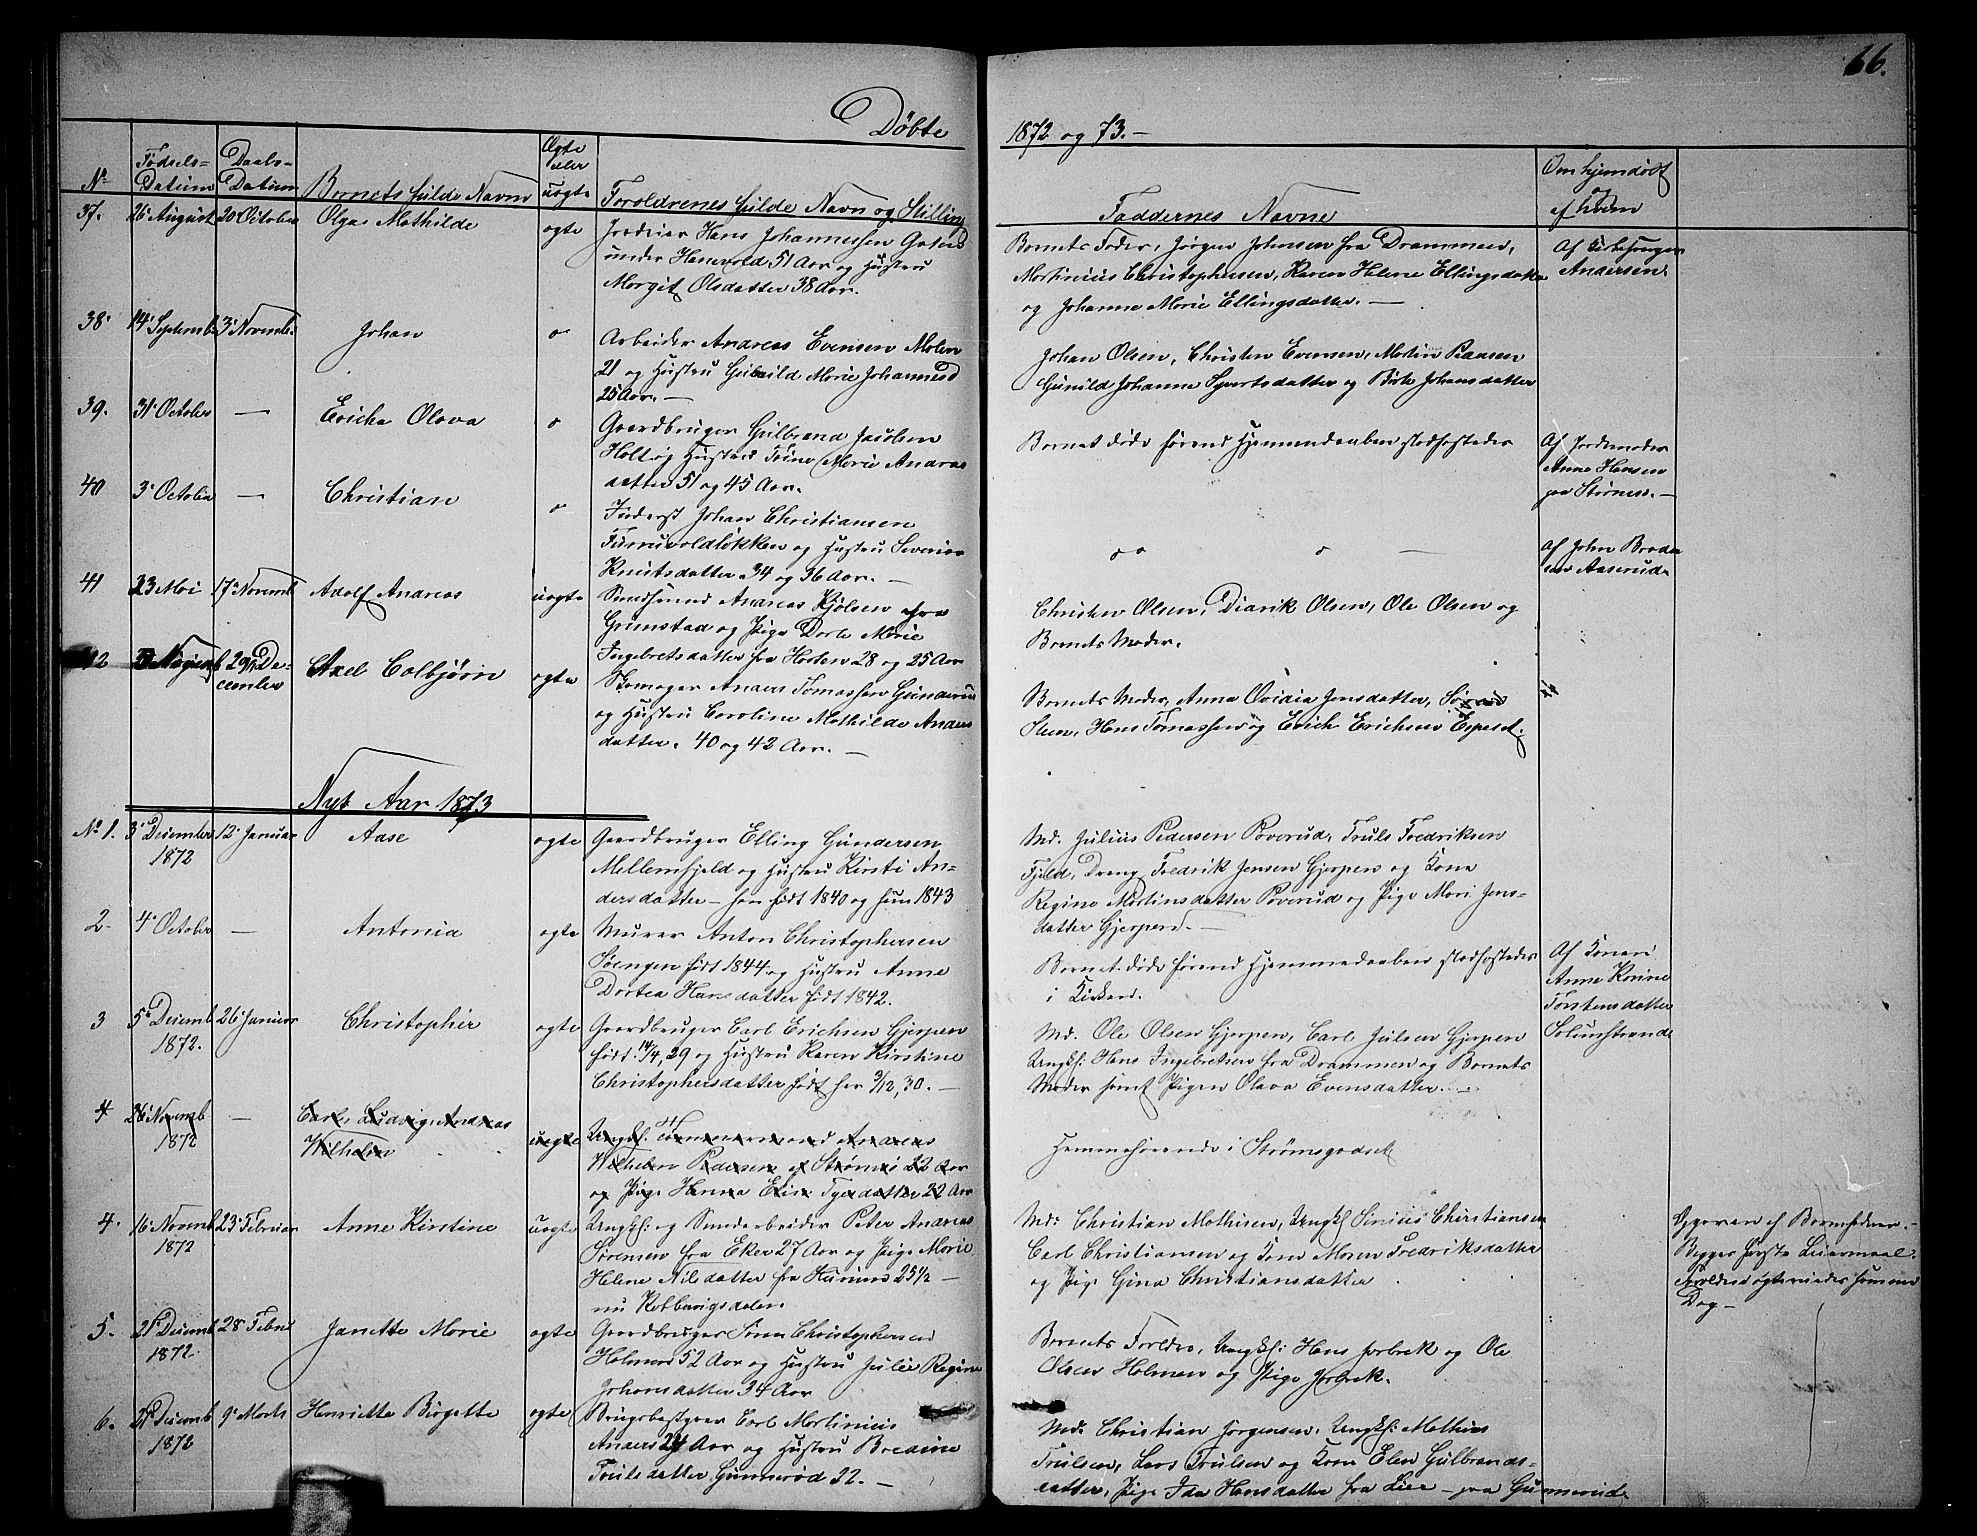 66.
Døbte
1872 og 73.-
No
Fødsels-
Datum
Daabs-
Datum
Barnets fulde Navn
Ægte
eler
uægte
Foroldrenes fulde Navn og Stilling
Faddernes Navne
Om hjemdøbt
og
af hvem
37. 26 August 20 October Olga Mathilde ægte
Hans Johannessen
under Hanevold 51 Aar og Hustru
Margit Olsdatter 38 Aar.
Barnets Fader, Jørgen Johnsen fra Drammen,
Martinius Christophersen, Karen Helene Ellingsdatter
og Johanne Marie Ellingsdatter. -
Af Kirkesanger
Andersen
38. 14 Septemb 3 Novemb Johan
Arbeider Andreas Evensen Molen
21 og Hustru Gunild Marie Johannesd
25 Aar. -
Johan Olsen, Christen Evensen, Martin
Gunild Johanne Syvertsdatter og Johansdatter
39. 31 October - Ericha Olava
Gaardbruger Gulbrand Jacobsen
Holt og Hustru Trine Marie Andreas
datter 51 og 45 Aar.
Barnet døde førend Hjemmedaaben stadfæstedes
Af Jordemoder
Anne Hansen
paa Strømsø. -
40 3 October - Christian
Inderst Johan Christiansen
Furruvoldløkken og Hustru Severine
Knutsdatter 34 og 36 Aar. -
Af John
Aaserud
41 23 Mai 17 Novemb Adolf Andreas uægte
Andreas Kjølsen fra
Grimstad og Pige Dorte Marie
Ingebretsdatter fra Horten 28 og 25 Aar
Christen Olsen, Diderik Olsen, Ole Olsen og
Barnets Moder.
42 29 De-
cember Axel Colbjørn ægte
Skomager Anders Tomassen Gunderud
og Hustru Caroline Mathilde Anders
datter. 40 og 42 Aar. -
Barnets Moder, Anna Ovidia Jensdatter,
Steen, Hans Tomassen og Erich Erichsen Espeset.
Nyt Aar 1873
No 1. 3 Desember
1872 12 Januar Aase ægte
Gaardbruger Elling Gundersen
Mellemfjeld og Hustru Kirsti An-
dersdatter - han født 1840 og hun 1843
Md. Julius Pedersen Poverud, Truls Fredriksen
Fjeld, Dreng Fredrik Jensen Gjerpen og Kone
Regine Martinsdatter Poverud og Pige Mari Jens-
datter Gjerpen. -
2. 4 October - Antonia ægte
Murer Anton Christophersen
Søengen født 1844 og Hustru Anne
Dortea Hansdatter født 1842.
Barnet døde førend Hjemmedaaben stadfæstedes
i Kirken.
Af Konen
Anne Karine
Torstensdatter
Solumstrand
3 5 Desemb
1872. 26 Januar Christopher ægte
Gaardbruger Carl Erichsen Gjerpen
født 14/4 29 og Hustru Karen Kirstine
Christophersdatter født her 3/12, 30. -
Md. Ole Olsen Gjerpen, Carl Julsen Gjerpen
Ungkf. Hans Ingebretsen fra Drammen og Barnets
Moder samt Pigen Olava Evensdatter. -
4 26 Novemb
1872 - Carl Ludvig Andreas
Wilhelm uægte
Ungkf. Tømmermand Andreas
Wilhelm Pedersen af Strømsø 22 Aar
og Pige Hanna Elise 22 Aar
Hjemmehørende i Strømsgodset
4. 16 Novemb
1872 23 Februar Anne Kirstine uægte
Ungkf. og Peter Andreas
Sørensen fra Eker 27 Aar og Pige Marie
Helene Nilsdatter fra Hurum 25 1/2 -
nu Kobbervigsdalen.
Md. Christian Mathisen, Ungkf Sinius Christiansen
Carl Christiansen og Kone Maren Fredriksdatter
og Pige Gina Christiansdatter
Opgiven af Barnefaderen. -
Begges første Leiermaal.
Forældre ægteviedes samme
Dag -
5. 21 Desemb
1872. 28 Febru Janette Marie ægte
Gaardbruger Simen Christophersen
Holmen 52 Aar og Hustru Julie Regine
Johansdatter 34 Aar
Barnets Foreldre, Ungkf. Hans Jarbek og Ole
Olsen Holmen og Pige Jarbek.
6. 21 Desemb
1872 9 Marts Henriette Birgette ægte
Brugsbestyrer Carl Martinius
Anders 24 Aar og Hustru Bredine
Trulsdatter Gunnerød 22. -
Md. Christian Jørgensen, Ungkf. Mathias
Trulsen, Lars Trulsen og Kone Elen Gulbrands-
datter, Pige Ida Hansdatter fra Lier - paa Gunnerud.